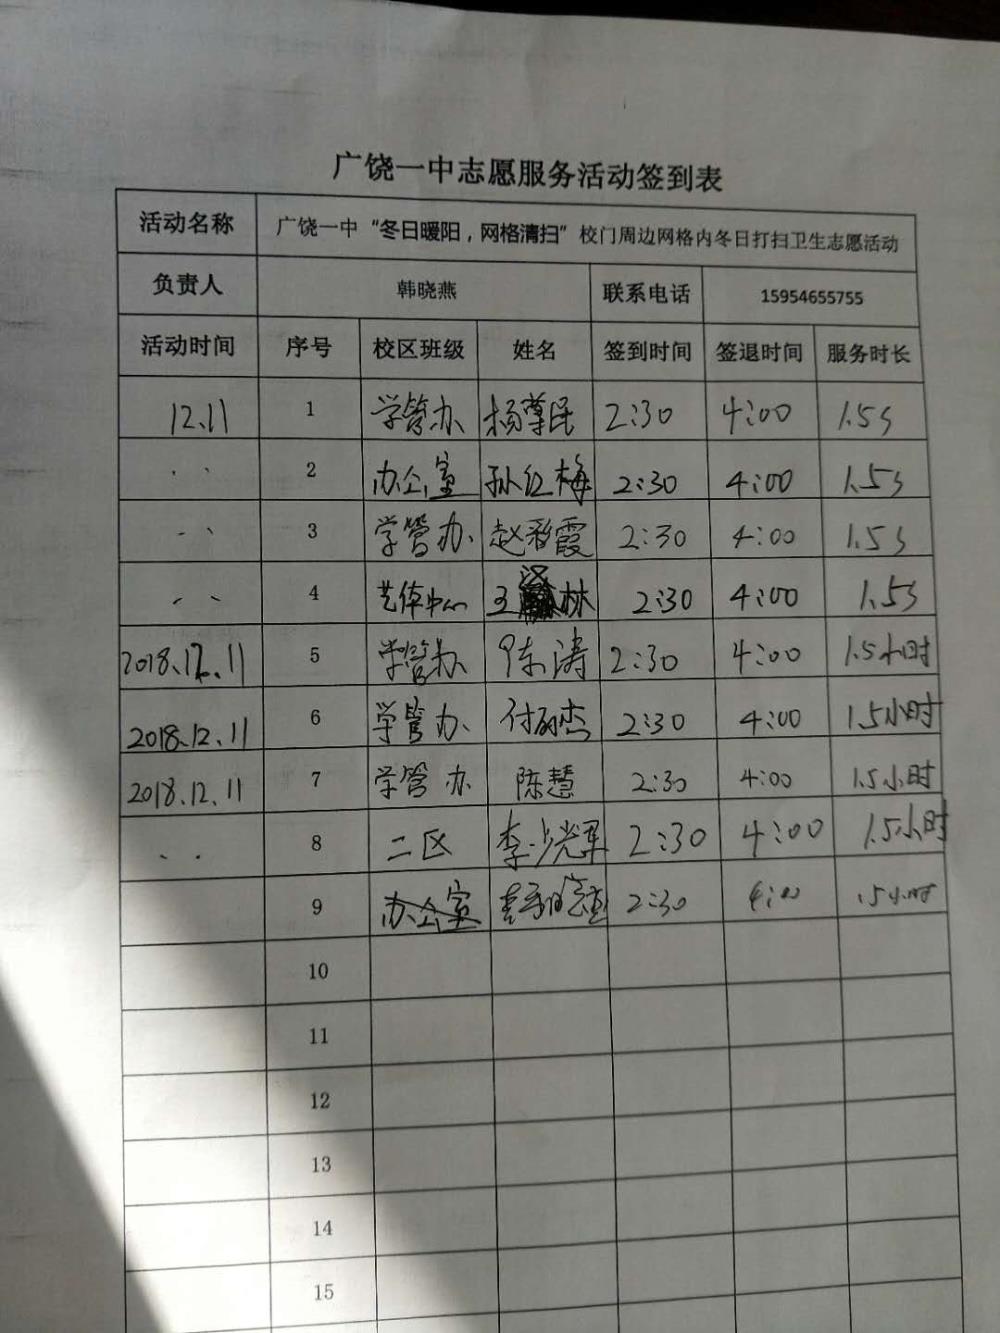 广饶一中志愿服务活动签到表
活动名称 广饶一中“冬日暖阳，网格清扫”校门周边网格内冬日打扫卫生志愿活动
负责人 韩晓燕 联系电话 15954655755
活动时间 序号 校区班级 姓名 签到时间 签退时间 服务时长
12.11 1 学管办 杨尊民 2:30 4:00 1.5s
.. 2 办公室 孙红梅 2:30 4:00 1.5s
.. 3 学管办 赵彩霞 2:30 4:00 1.5s
.. 4 艺体中心 王汉林 2:30 4:00 1.5s
2018.12.11 5 学管办 陈涛 2:30 4:00 1.5小时
2018.12.11 6 学管办 付 杰 2:30 4:00 1.5小时
2018.12.11 7 学管办 陈慧 2:30 4:00 1.5小时
.. 8 二区 李少光军 2:30 4:00 1.5小时
9 办公室 2:30 4:00 1.5小时
10
11
12
13
14
15